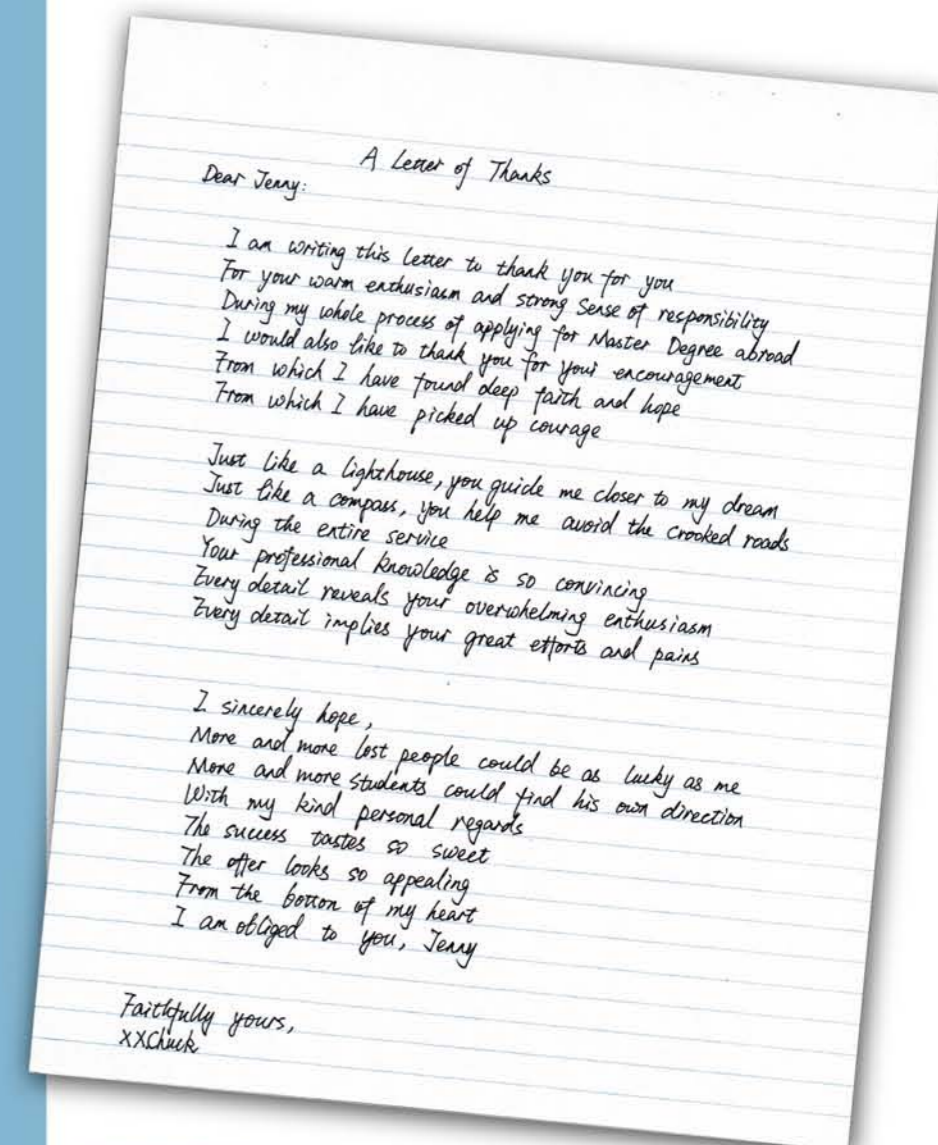 A Letter of Thanks
Dear Jenny:
I am writing this letter to thank you for you
For your warm enthusiasm and strong Sense of responsibility
During my whole process of applying for Master Degree abroad
I would also like to thank you for your encouragement
From which I have found deep faith and hope
From which I have picked up courage
Just like a lighthouse, you guide me closer to my dream
Just like a compass, you help me avoid the crooked roads
During the entire service
Your professional knowledge is so convincing
Every detail reveals your overwhelming enthusiasm
Every detail implies your great efforts and pains
I sincerely hope,
More and more lost people could be as lucky as me
More and more students could find his own direction
With my kind personal regards
The success tastes so sweet
The offer looks so appealing
From the botton of my heart
I am obliged to you, Jenny
Faithfully yours,
XXChuck